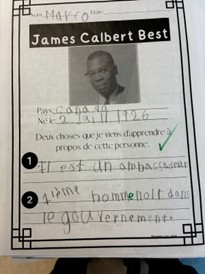 Nom: Marco Date:
James Calbert Best
Pays: Canada
Né le: 2 Juill 1926
Deux choses que je viens d'apprendre à
propos de cette personne.
1 Il est un ambassadeur
2 1ième homme noir dans
le gouvernement.